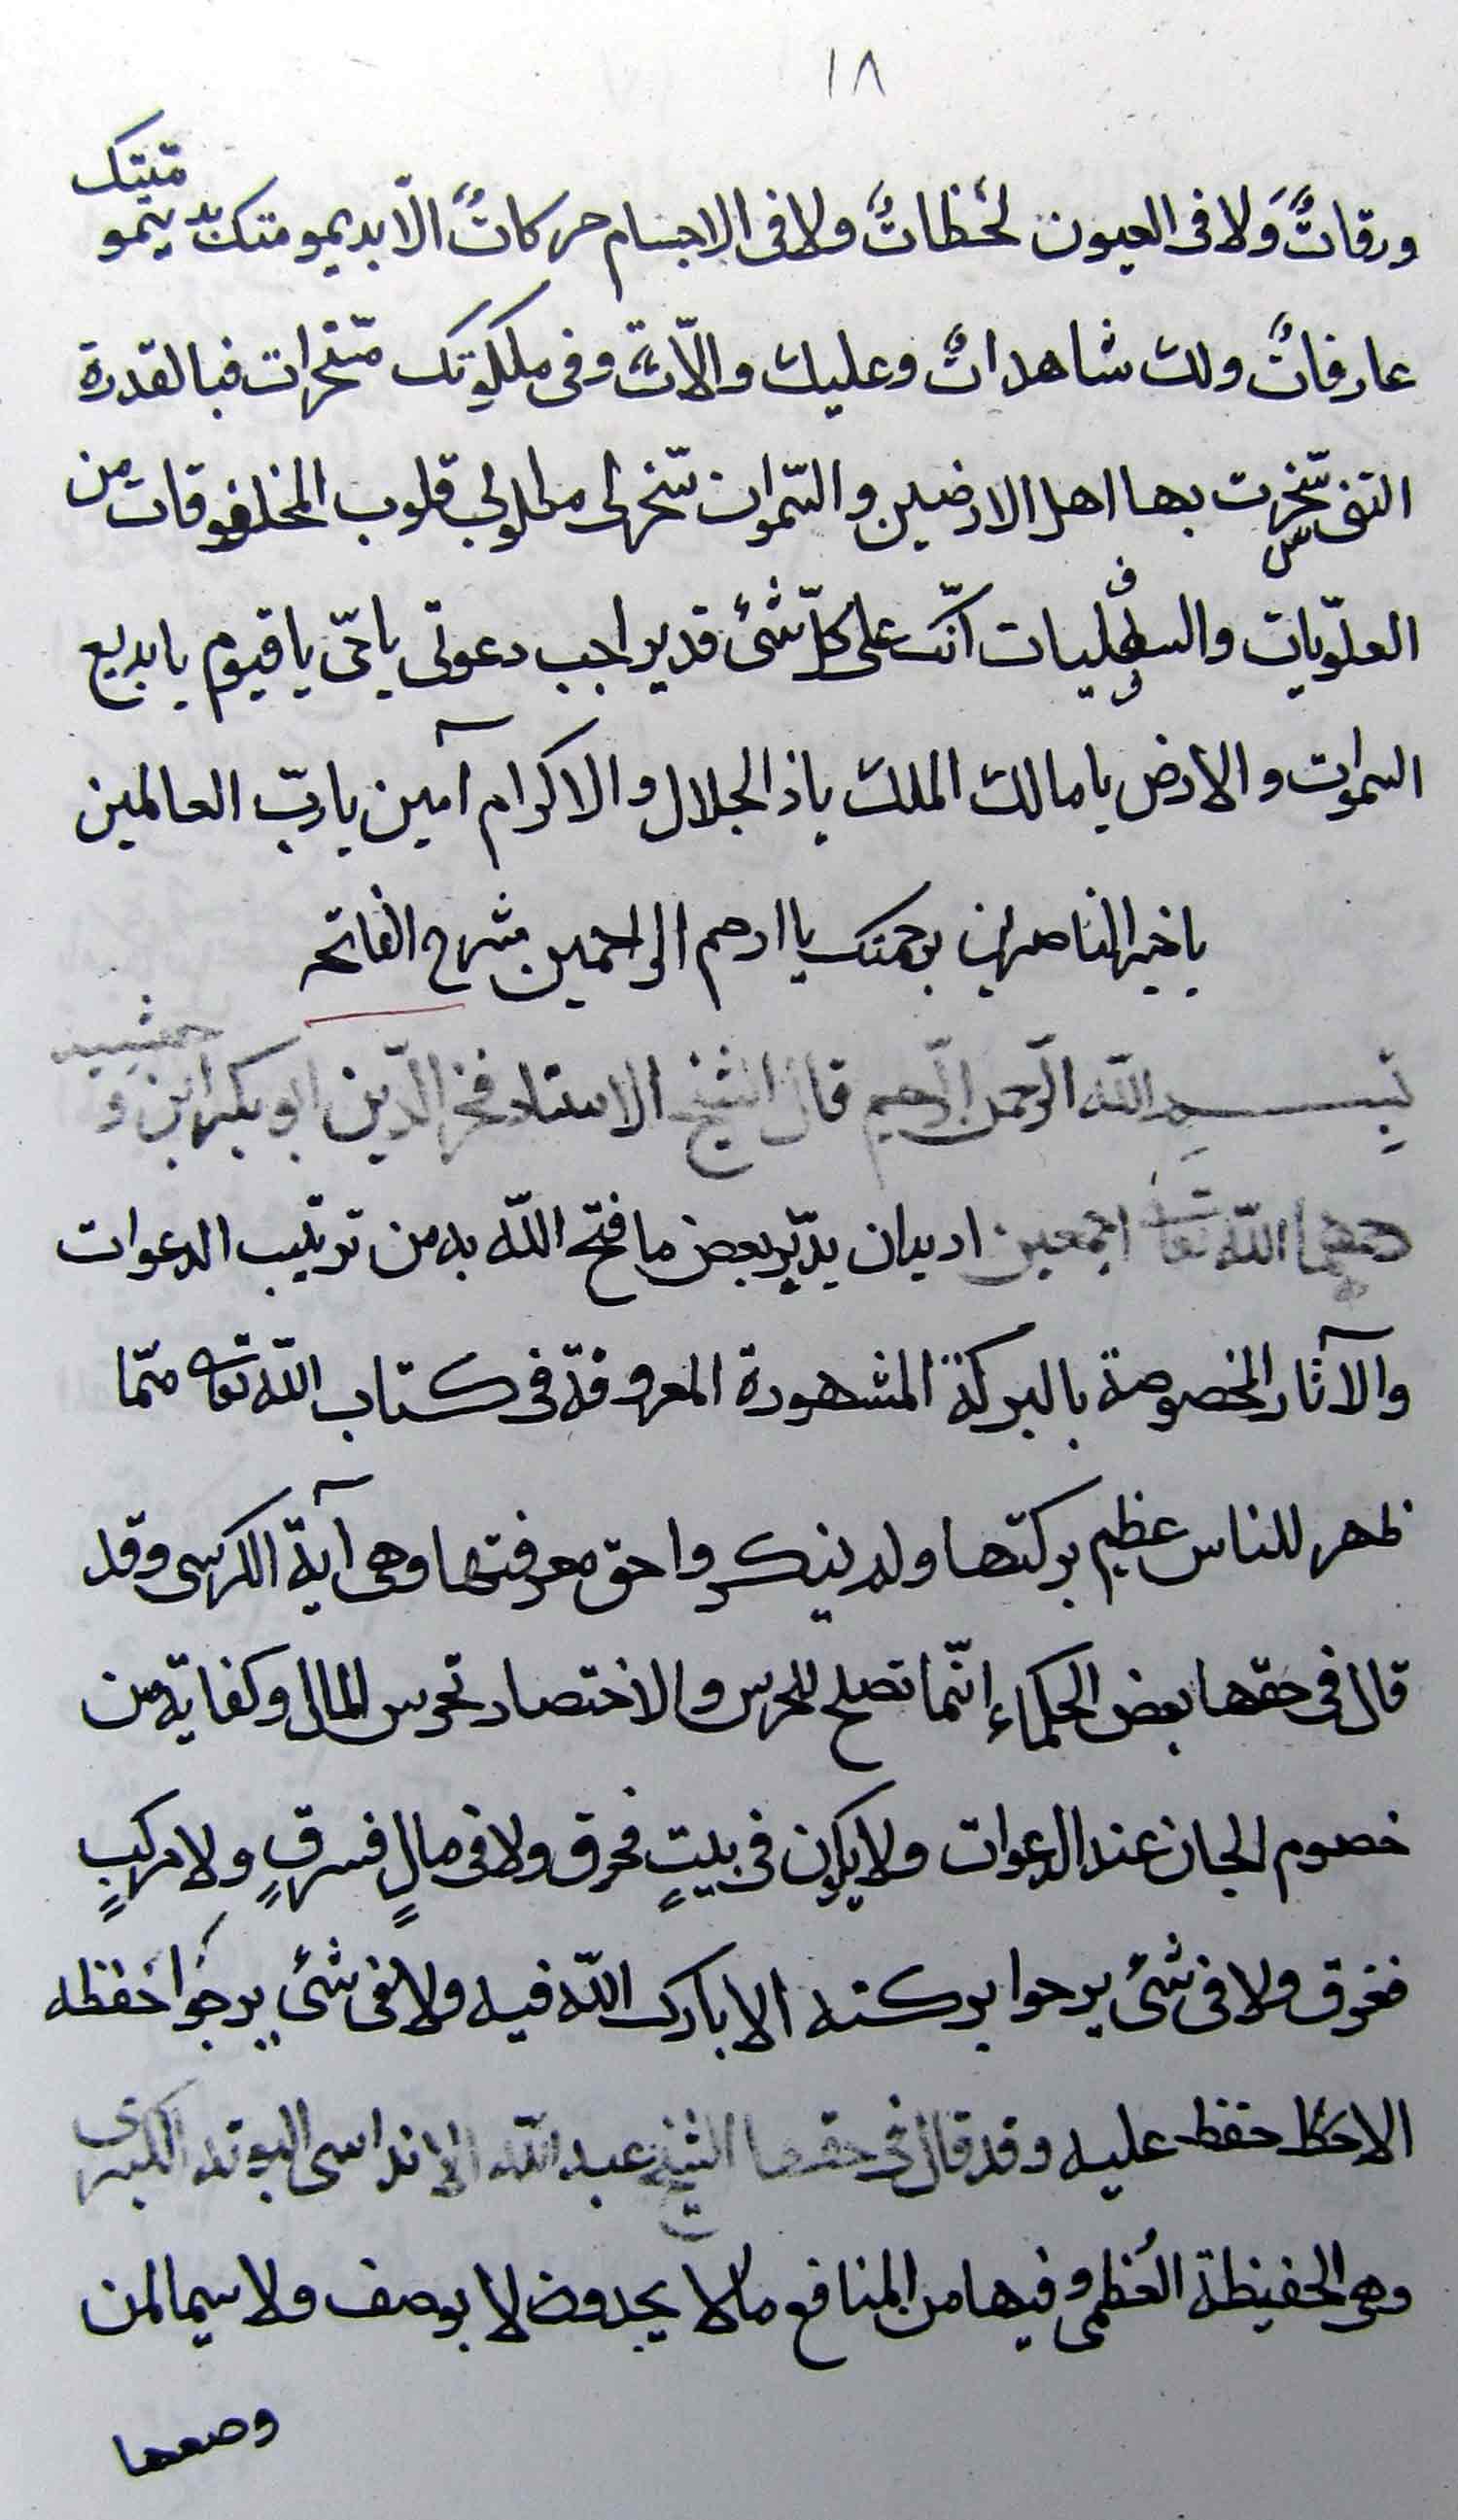 ١٨
ورقاتٌ وَلا فى العيون لحظاتٌ ولا فى الاجسام حركاتٌ الّا بديمومتك بديمو
متيتك
عارفاتٌ ولك شاهداتٌ وعليك والّاتٌ وفى ملكوتك متحرات فبالقدرة
التى سخرت بها اهل الارضين والسّموات سخر لى مطلوبى قلوب المخلوقات من
العلويّات والسفليات انّك على كلّ شئ قدير اجب دعوتى ياحىّ ياقيوم يابديع
السموات والارض يامالك الملك ياذالجلال والاكرام آمين ياربّ العالمين
ياخير الناصرين برحمتك ياارحم الراحمين شرح الفاتحه
بسم الله الرّحمن الرّحيم قال الشيخ الاستاد فخر الدّين ابوبكر ابن و
جمشيد
الله تعا اجمعين اديدان يدبّر بعض ما فتح الله به من ترتيب الدعوات
والآثار المخصوصة بالبركة المشهودة المعروفة فى كتاب الله تعا ممّا
ظهر للناس عظيم بركتها ولم ينكروا حق معرفتها وهى آية الكرسى وقد
قال فى حقها بعض الحكماء إنّما تصلح للحرس والاختصار تحرس المال وكفاية من
خصوم الجان عند الدعوات ولا يكون فى بيتٍ فحرق ولا فى مالٍ فسرقٍ ولا مركبٍ
فغرق ولا فى شئ يرجوا بركته الا بارك الله فيه ولا فى شئ يرجوا حفظه
الا حفظ عليه وقد قال فى حقها الشيخ عبد الله الكبرى
وهى الحفيظة العُظمى وفيها من المنافع مالا يحد ولا يوصف ولا سيما لمن
وصعها